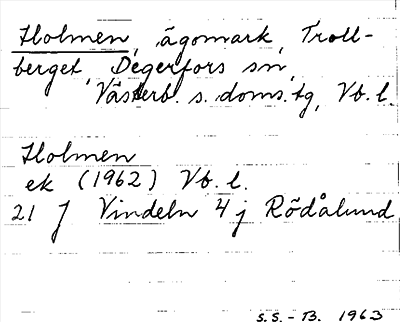 Holmen, ägomark, Troll-
berget, Degerfors sn,
Västerb. s. doms. tg, Vb. l.
Holmen
ek (1962) Vb. l.
21 J Vindeln 4 j Rödålund
S.S. - B. 1963